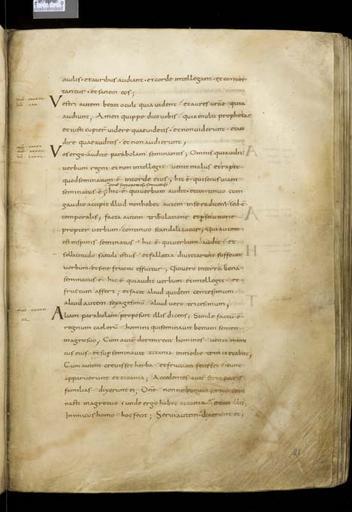 oculis · et auribus audiant · et corde intellegant · et conver
tantur · et sanem eos ;
Vestri autem beati oculi quia vident · et aures vestrae quia
audiunt ; Amen quippe dico vobis · quia multi prophetae
et iusti cupierunt videre quae videtis · et non viderunt · et au
dire quae auditis · et non audierunt ;
Vos ergo audite parabolam seminantis ; Omnis qui audit
verbum regni · et non intellegit · venit malus et rapit
quod seminatum est in corde eius ; hic est qui secus viam
seminatus est ;
hic est qui verbum audit · et continuo cum
gaudio accipit illud non habet autem in se radicem sed est
temporalis ; facta autem tribulatione et persecutione
propter verbum · continuo scandalizatur ; qui autem
est in spinis seminatus · hic est qui verbum audit · et
sollicitudo saeculi istius · et fallacia divitiarum suffocat
verbum · et sine fructu efficitur ; Qui vero in terra bona
seminatus est · hic est qui audit verbum et intellegit · et
fructum affert ; et facit aliud quidem centesimum ·
aliud autem sexagesimum · aliud vero tricesimum ;
Aliam parabolam proposuit illis dicens ; Simile factum est
regnum caelorum · homini qui seminavit bonum semen
in agro suo ; Cum autem dormirent homines · venit inimi
cus eius · et superseminavit zizania · in medio tritici et abiit ;
Cum autem crevisset herba · et fructum fecisset · tunc
apparuerunt et zizania ; Accedentes autem servi patris
familias · dixerunt ei ; Domine nonne bonum semen semi
nasti in agro tuo · unde ergo habet zizania · et ait illis ;
Inimicus homo hoc fecit ; Servi autem dixerunt ei ;